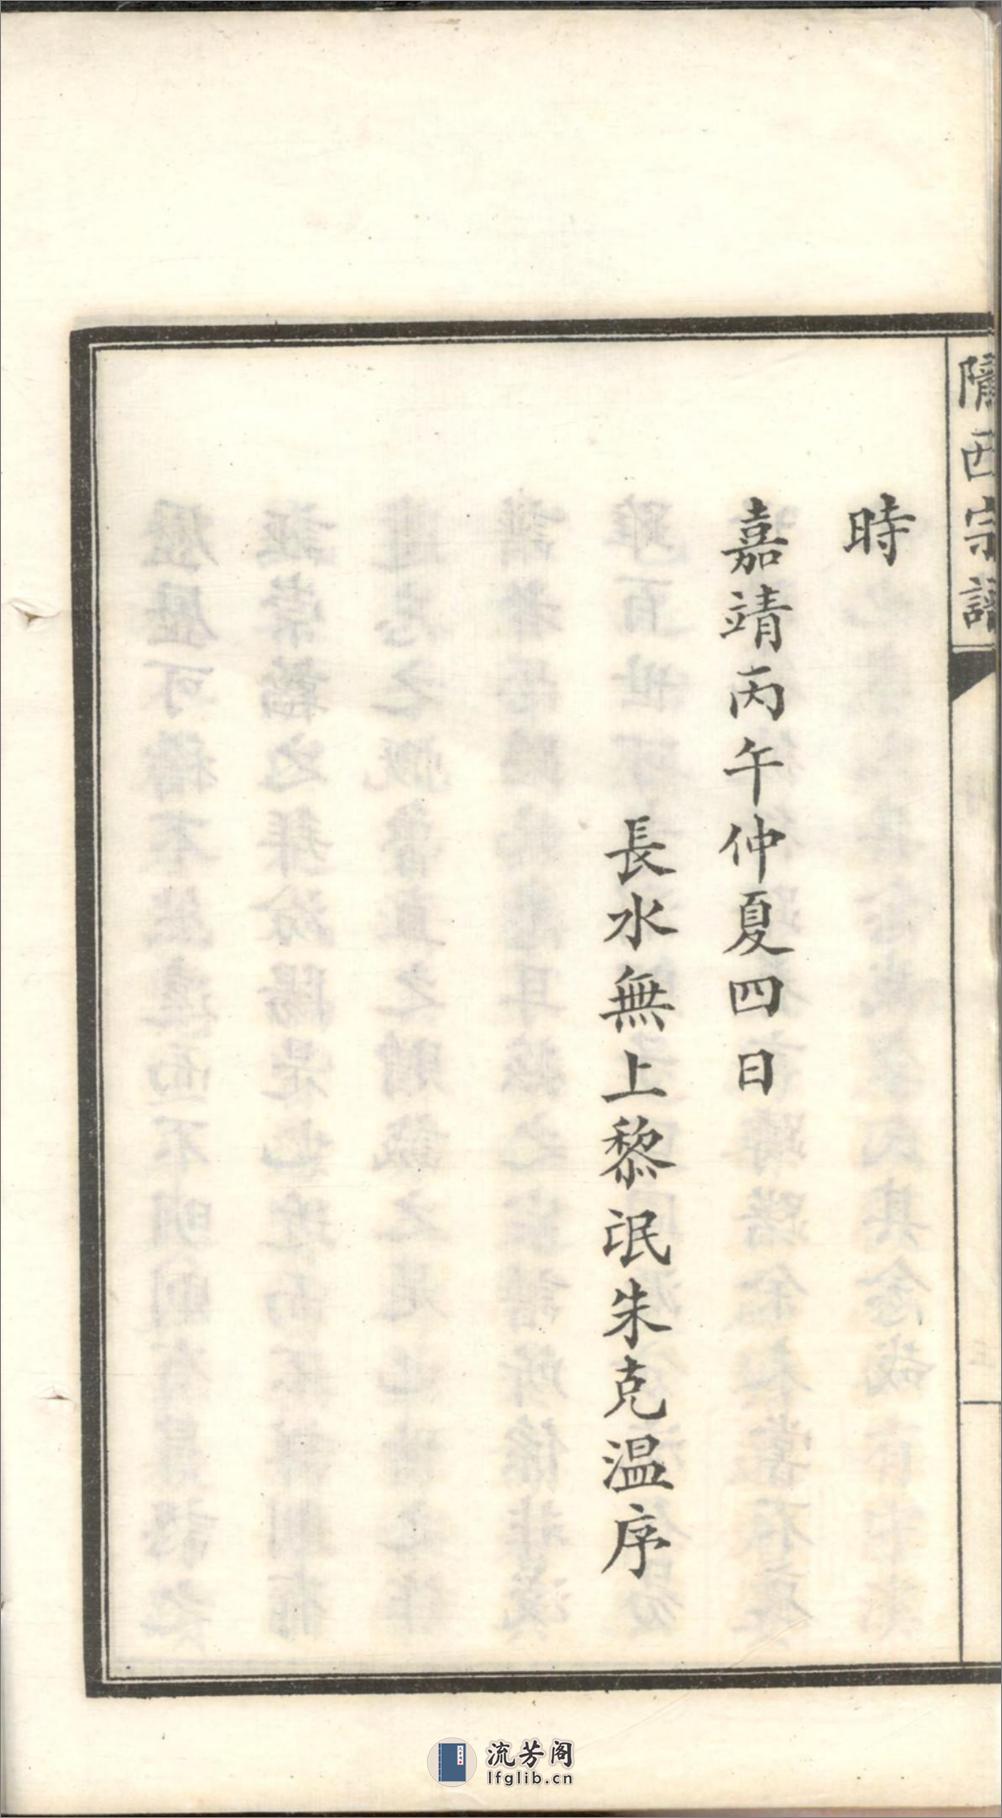 隴西宗譜
時
嘉靖丙午仲夏四日
長水無上黎氓朱克温序
流芳阁
lfglib.cn